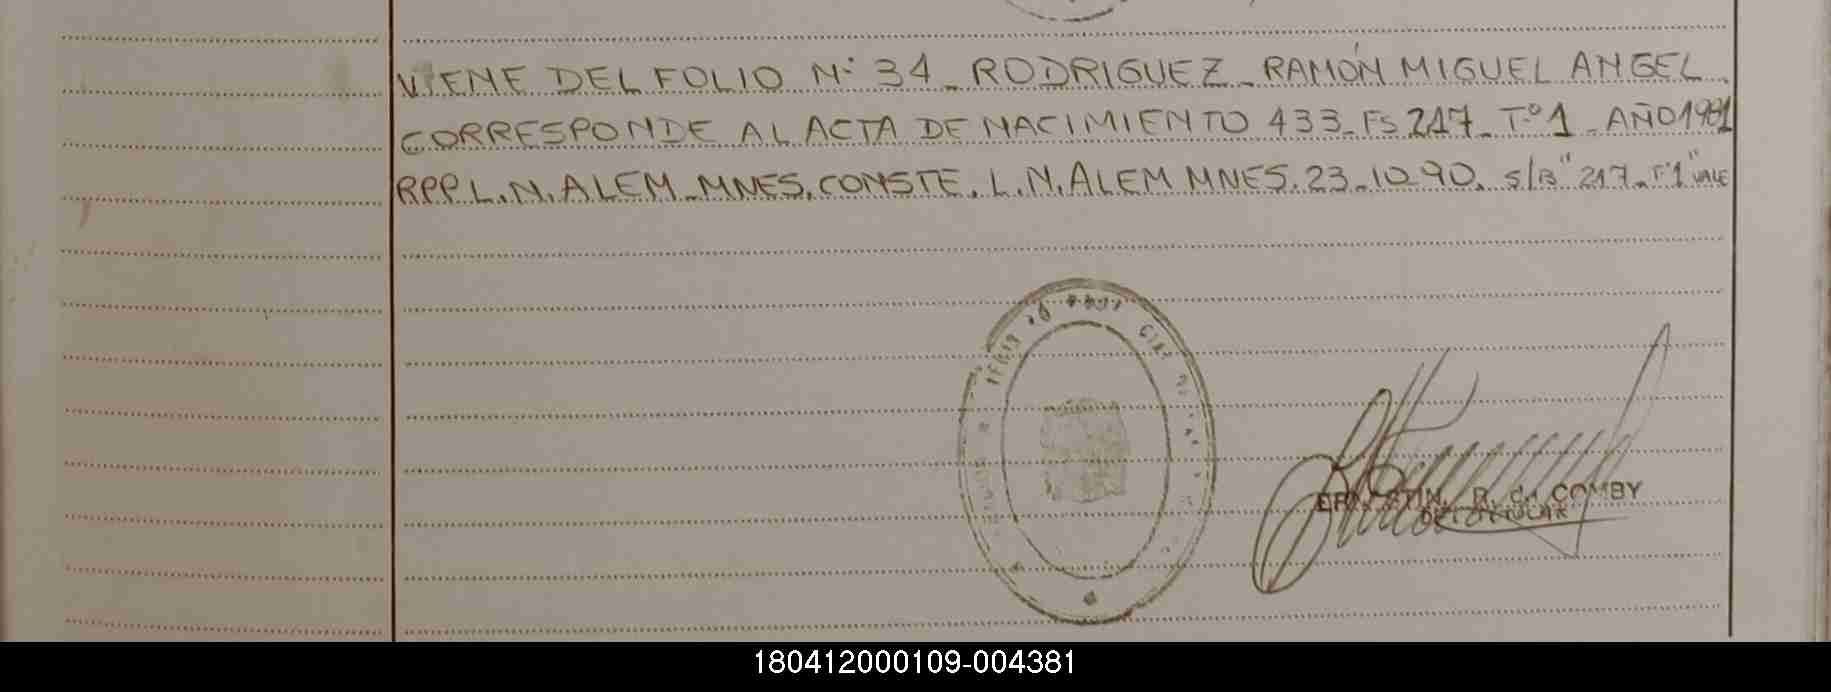 VIENE DEL FOLIO Nº 34_ RODRIGUEZ_ RAMÓN MIGUEL ANGEL.
CORRESPONDE AL ACTA DE NACIMIENTO 433_FS 217_ Tº1_AÑO1981
RPP L.N.ALEM_MNES.CONSTE. L.N.ALEM MNES.23_10_90. S/B "217_Tº1" VALE
R. de COMBY
180412000109-004381